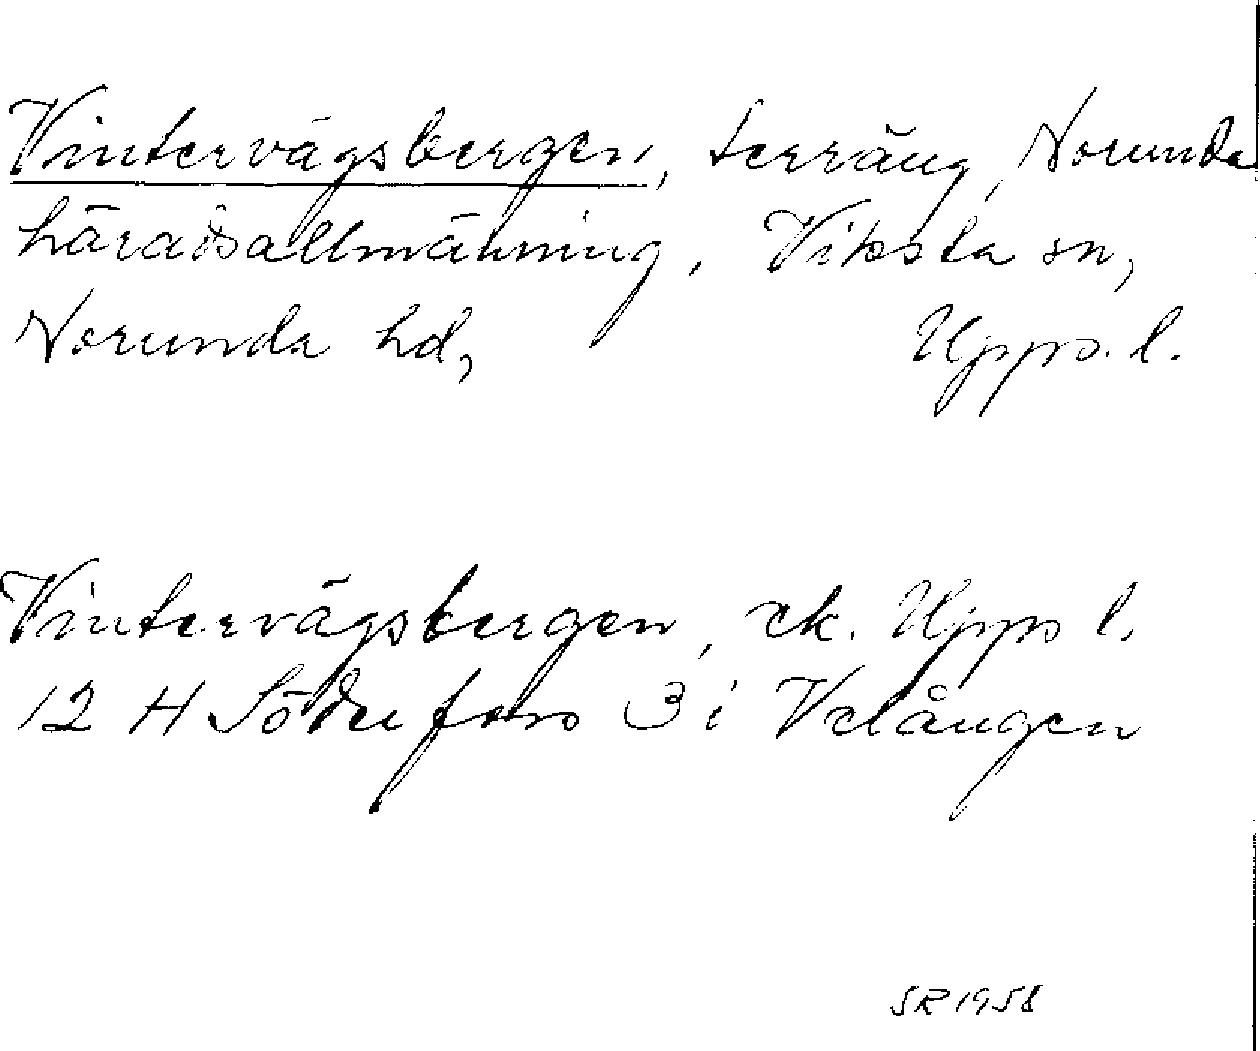 Vintervägsbergen, terräng, Norunda
häradsallmänning, Viksta sn,
Norunda hd, Upps. l.
Vintervägsbergen, ek. Upps l.
12 H Söderfors 3 i Velången
SR 1958